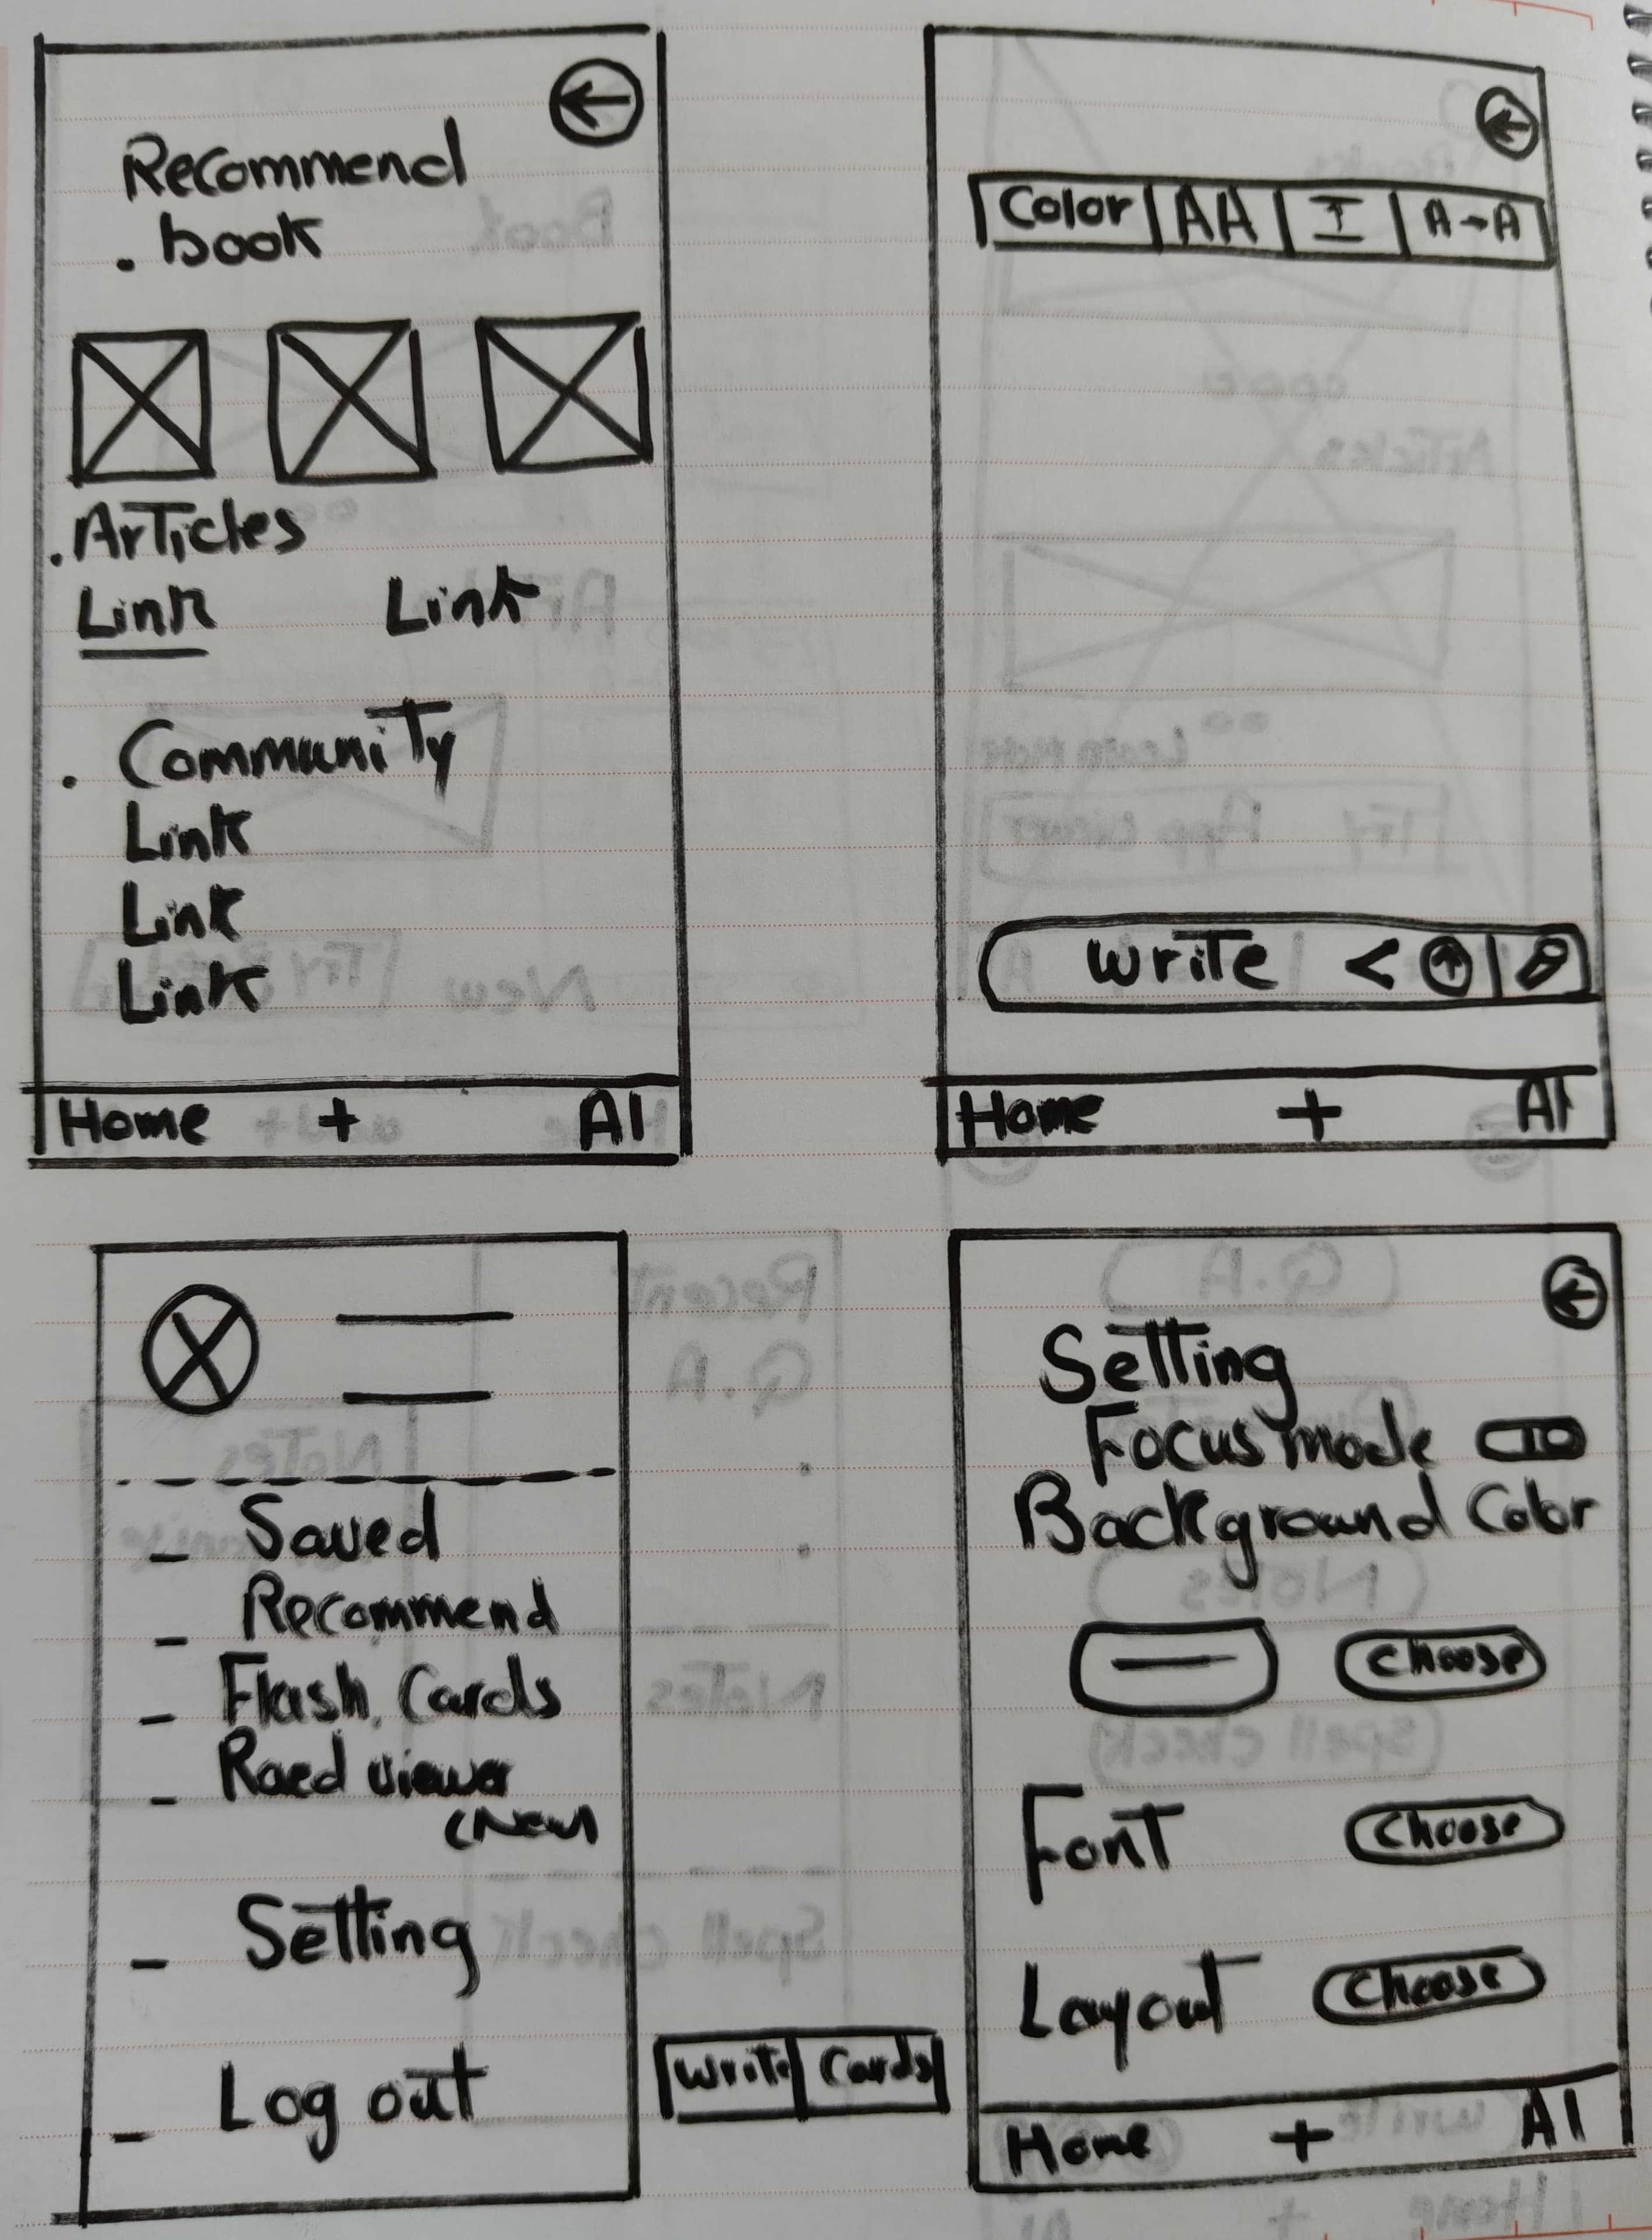 Recommend
. book
. Articles
Link Link
. Community
Link
Link
Link
Home + AI
Color AA I A→A
write <
Home + AI
- Saved
- Recommend
- Flash Cards
- Raed viewer
(New)
- Setting
- Log out
write Cards
Setting
Focus mode
Background Color
choose
Font choose
Layout choose
Home + AI